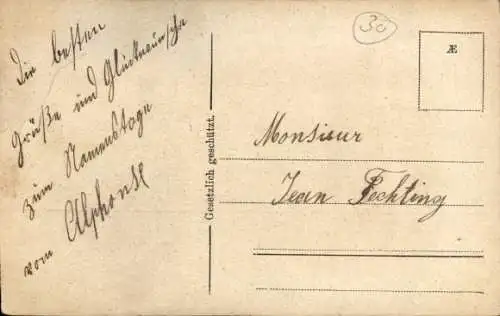 Die besten
Grüße und Glückwunsche
zum Namenstage
vom Alphonse
Gesetzlich geschützt.
30
Æ
Monsieur
Jean Pechting